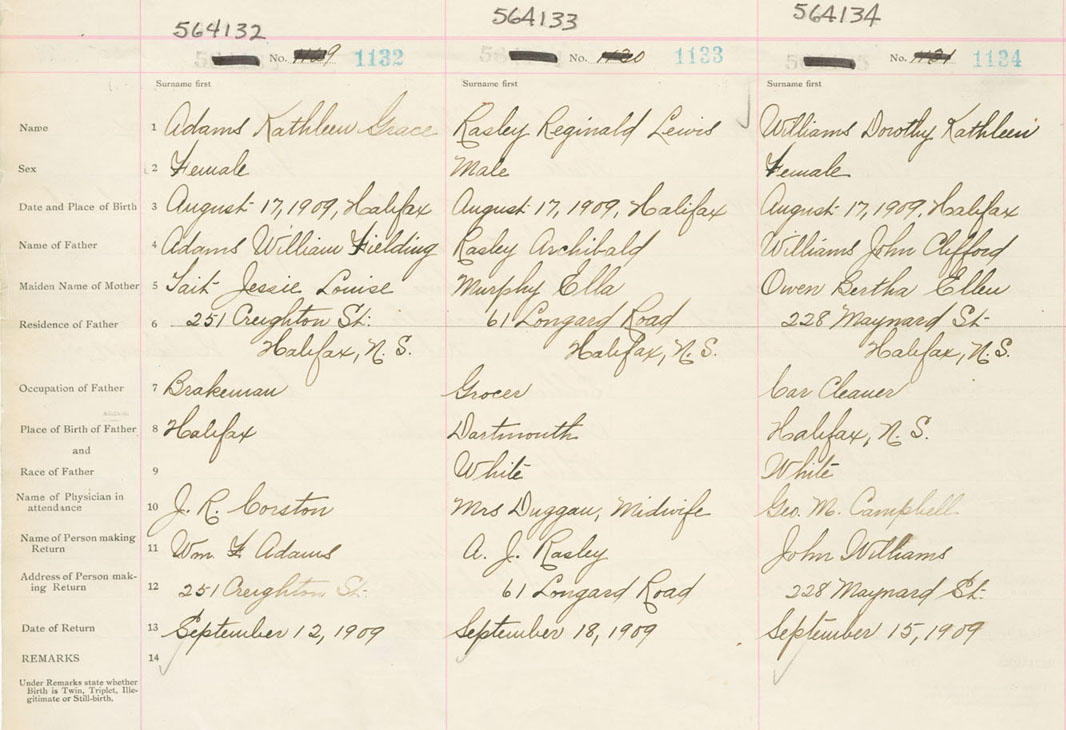 564132 564133 564134
No. 1132 No. 1133 No. 1134
Surname first Surname first Surname first
Name 1 Adams Kathleen Grace Rasley Reginald Lewis Williams Dorothy Kathleen
Sex 2 Female Male Female
Date and Place of Birth 3 August 17, 1909, Halifax August 17, 1909, Halifax August 17, 1909, Halifax
Name of Father 4 Adams William Fielding Rasley Archibald Williams John Clifford
Maiden Name of Mother 5 Tait Jessie Louise Murphy Ella Owen Bertha Ellen
Residence of Father 6 251 Creighton St. 61 Longard Road 228 Maynard St
Halifax, N. S. Halifax, N. S. Halifax, N. S.
Occupation of Father 7 Brakeman Grocer Car Cleaner
Place of Birth of Father 8 Halifax Dartmouth Halifax, N. S.
and
Race of Father 9 White White
Name of Physician in
attendance 10 J. R. Corston Mrs Duggan, Midwife Geo. M. Campbell
Name of Person making
Return 11 Wm F Adams A. J. Rasley John Williams
Address of Person mak-
ing Return 12 251 Creighton St. 61 Longard Road 228 Maynard St.
Date of Return 13 September 12, 1909 September 18, 1909 September 15, 1909
REMARKS 14
Under Remarks state whether
Birth is Twin, Triplet, Ille-
gitimate or Still-birth.